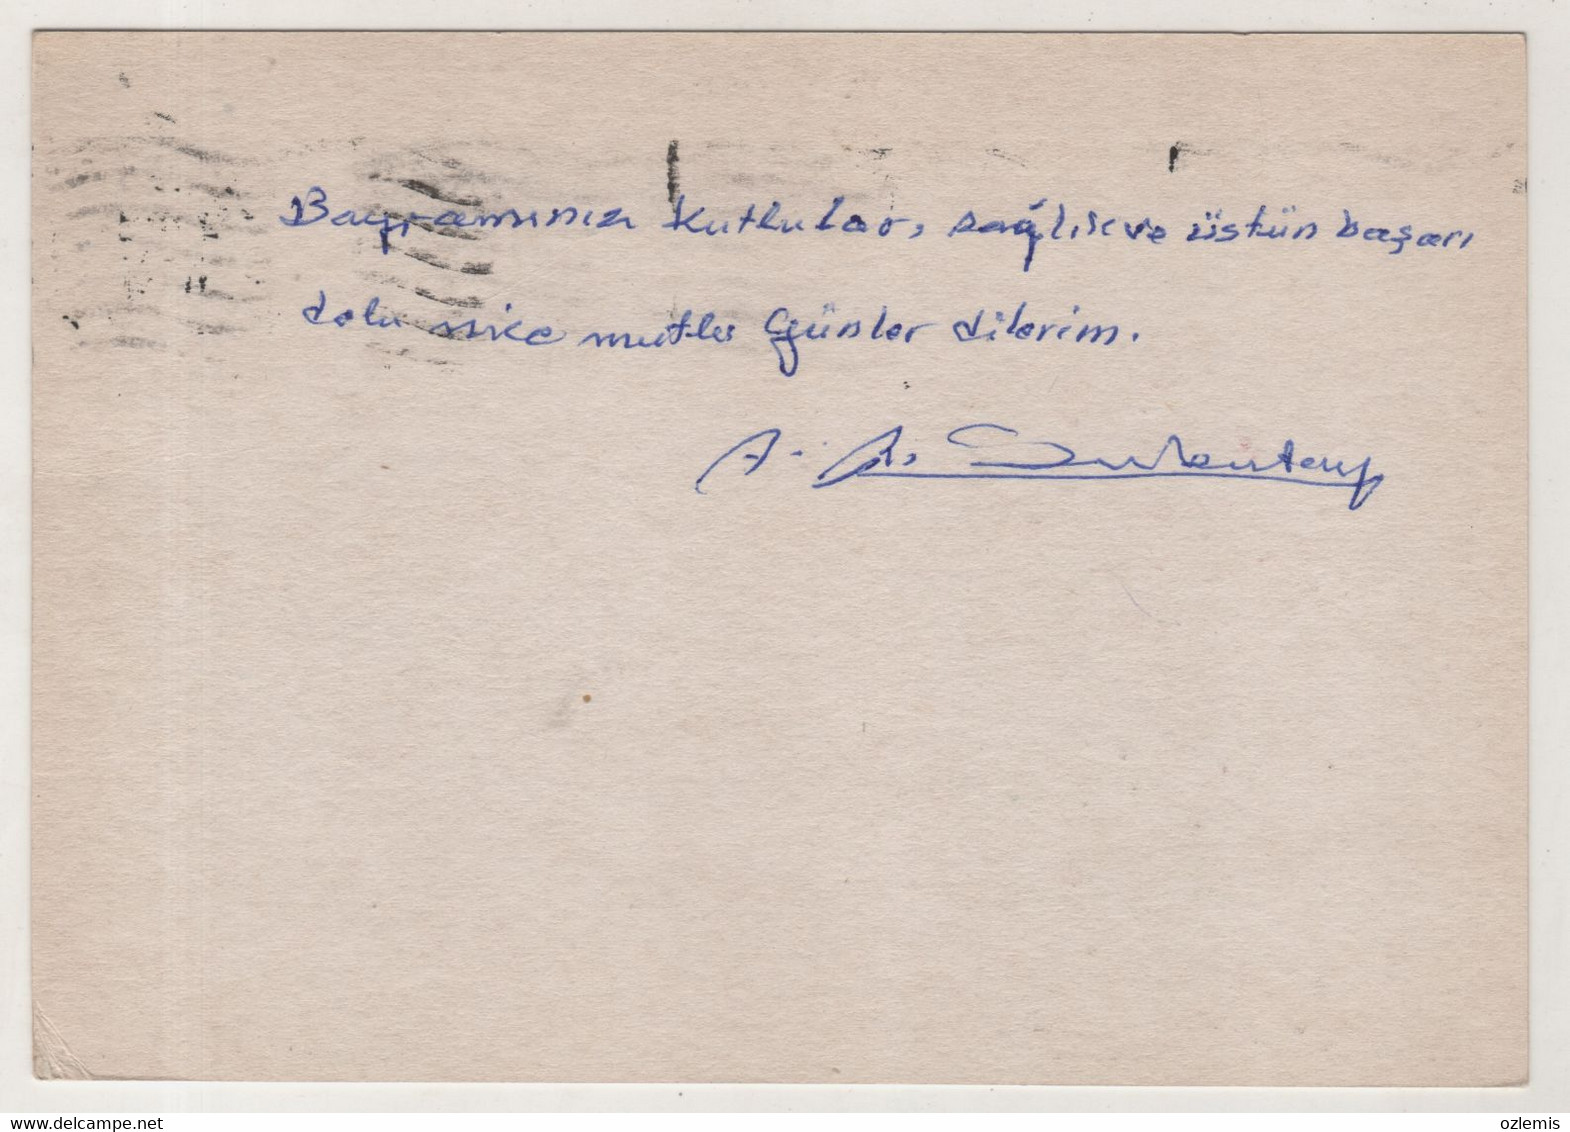 Bayramınızı kutlular, sağlık ve üstün başarı
dolu nice mutlu günler dilerim.
ozlemis